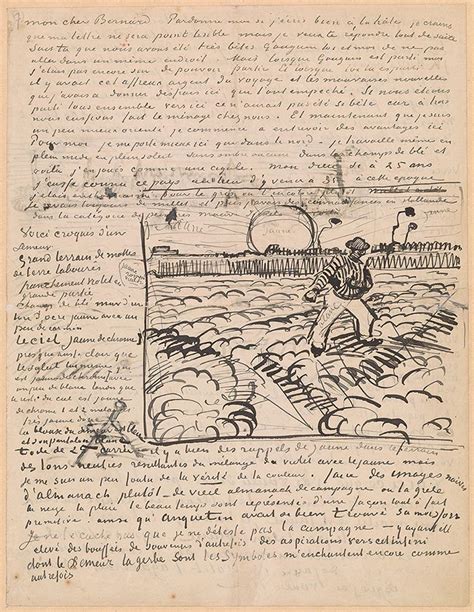 mon cher Bernard Pardonne moi si j'écris bien à la hâte je crains
que ma lettre ne sera point lisible mais je veux te répondre tout de suite
Sais tu que nous avons été très bêtes Gauguin toi et moi de ne pas
aller dans un même endroit. Mais lorsque Gauguin est parti moi
j'étais pas encore sûr de pouvoir partir Et lorsque toi es parti
il y avait cet affreux argent du voyage et les mauvaises nouvelles
que j'avais à donner des frais ici qui l'ont empêché. Si nous étions
partis tous ensemble vers ici ce n'aurait pas été si bête car à trois
nous eussions fait le ménage chez nous. Et maintenant que je suis
un peu mieux orienté je commence à entrevoir des avantages ici
Pour moi je me porte mieux ici que dans le nord – je travaille même en
plein midi en plein soleil sans ombre aucune dans les champs de blé et
voilà j'en jouis comme une cigale. mon Dieu si à 25 ans
j'eusse connu ce pays au lieu d'y venir à 35 – à cette époque
j'étais enthousiasmé pour le gris
Voici croquis d'un
Semeur
Grand terrain de mottes
de terre labourés
franchement violet en
grande partie
Champ de blé mûr d'un
ton d'ocre jaune avec un
peu de carmin
Le ciel jaune de chrome
presqu'aussi clair que
le soleil lui-même qui
est jaune de chrome avec
un peu de blanc tandis que
le reste du ciel est jaune
de chrome 1 et 2 mélangés
très jaune donc
La blouse du Semeur est bleue
et son pantalon blanc
toile de 25 carrée
jaune
il y a bien des rappels de jaune dans le terrain
des tons neutres résultants du mélange du violet avec le jaune mais
je me suis un peu foutu de la vérité de la couleur. faire des images naïves
d'almanach plutôt – de vieil almanach de campagne où la grêle
la neige la pluie le beau temps sont représentés d'une façon tout à fait
primitive. ainsi qu'Anquetin avait si bien trouvé sa moisson
Je ne te cache pas que je ne déteste pas la campagne – y ayant été
élevé des bouffées de souvenirs d'autrefois des aspirations vers cet infini
dont le Semeur la gerbe sont les symboles m'enchantent encore comme
autrefois